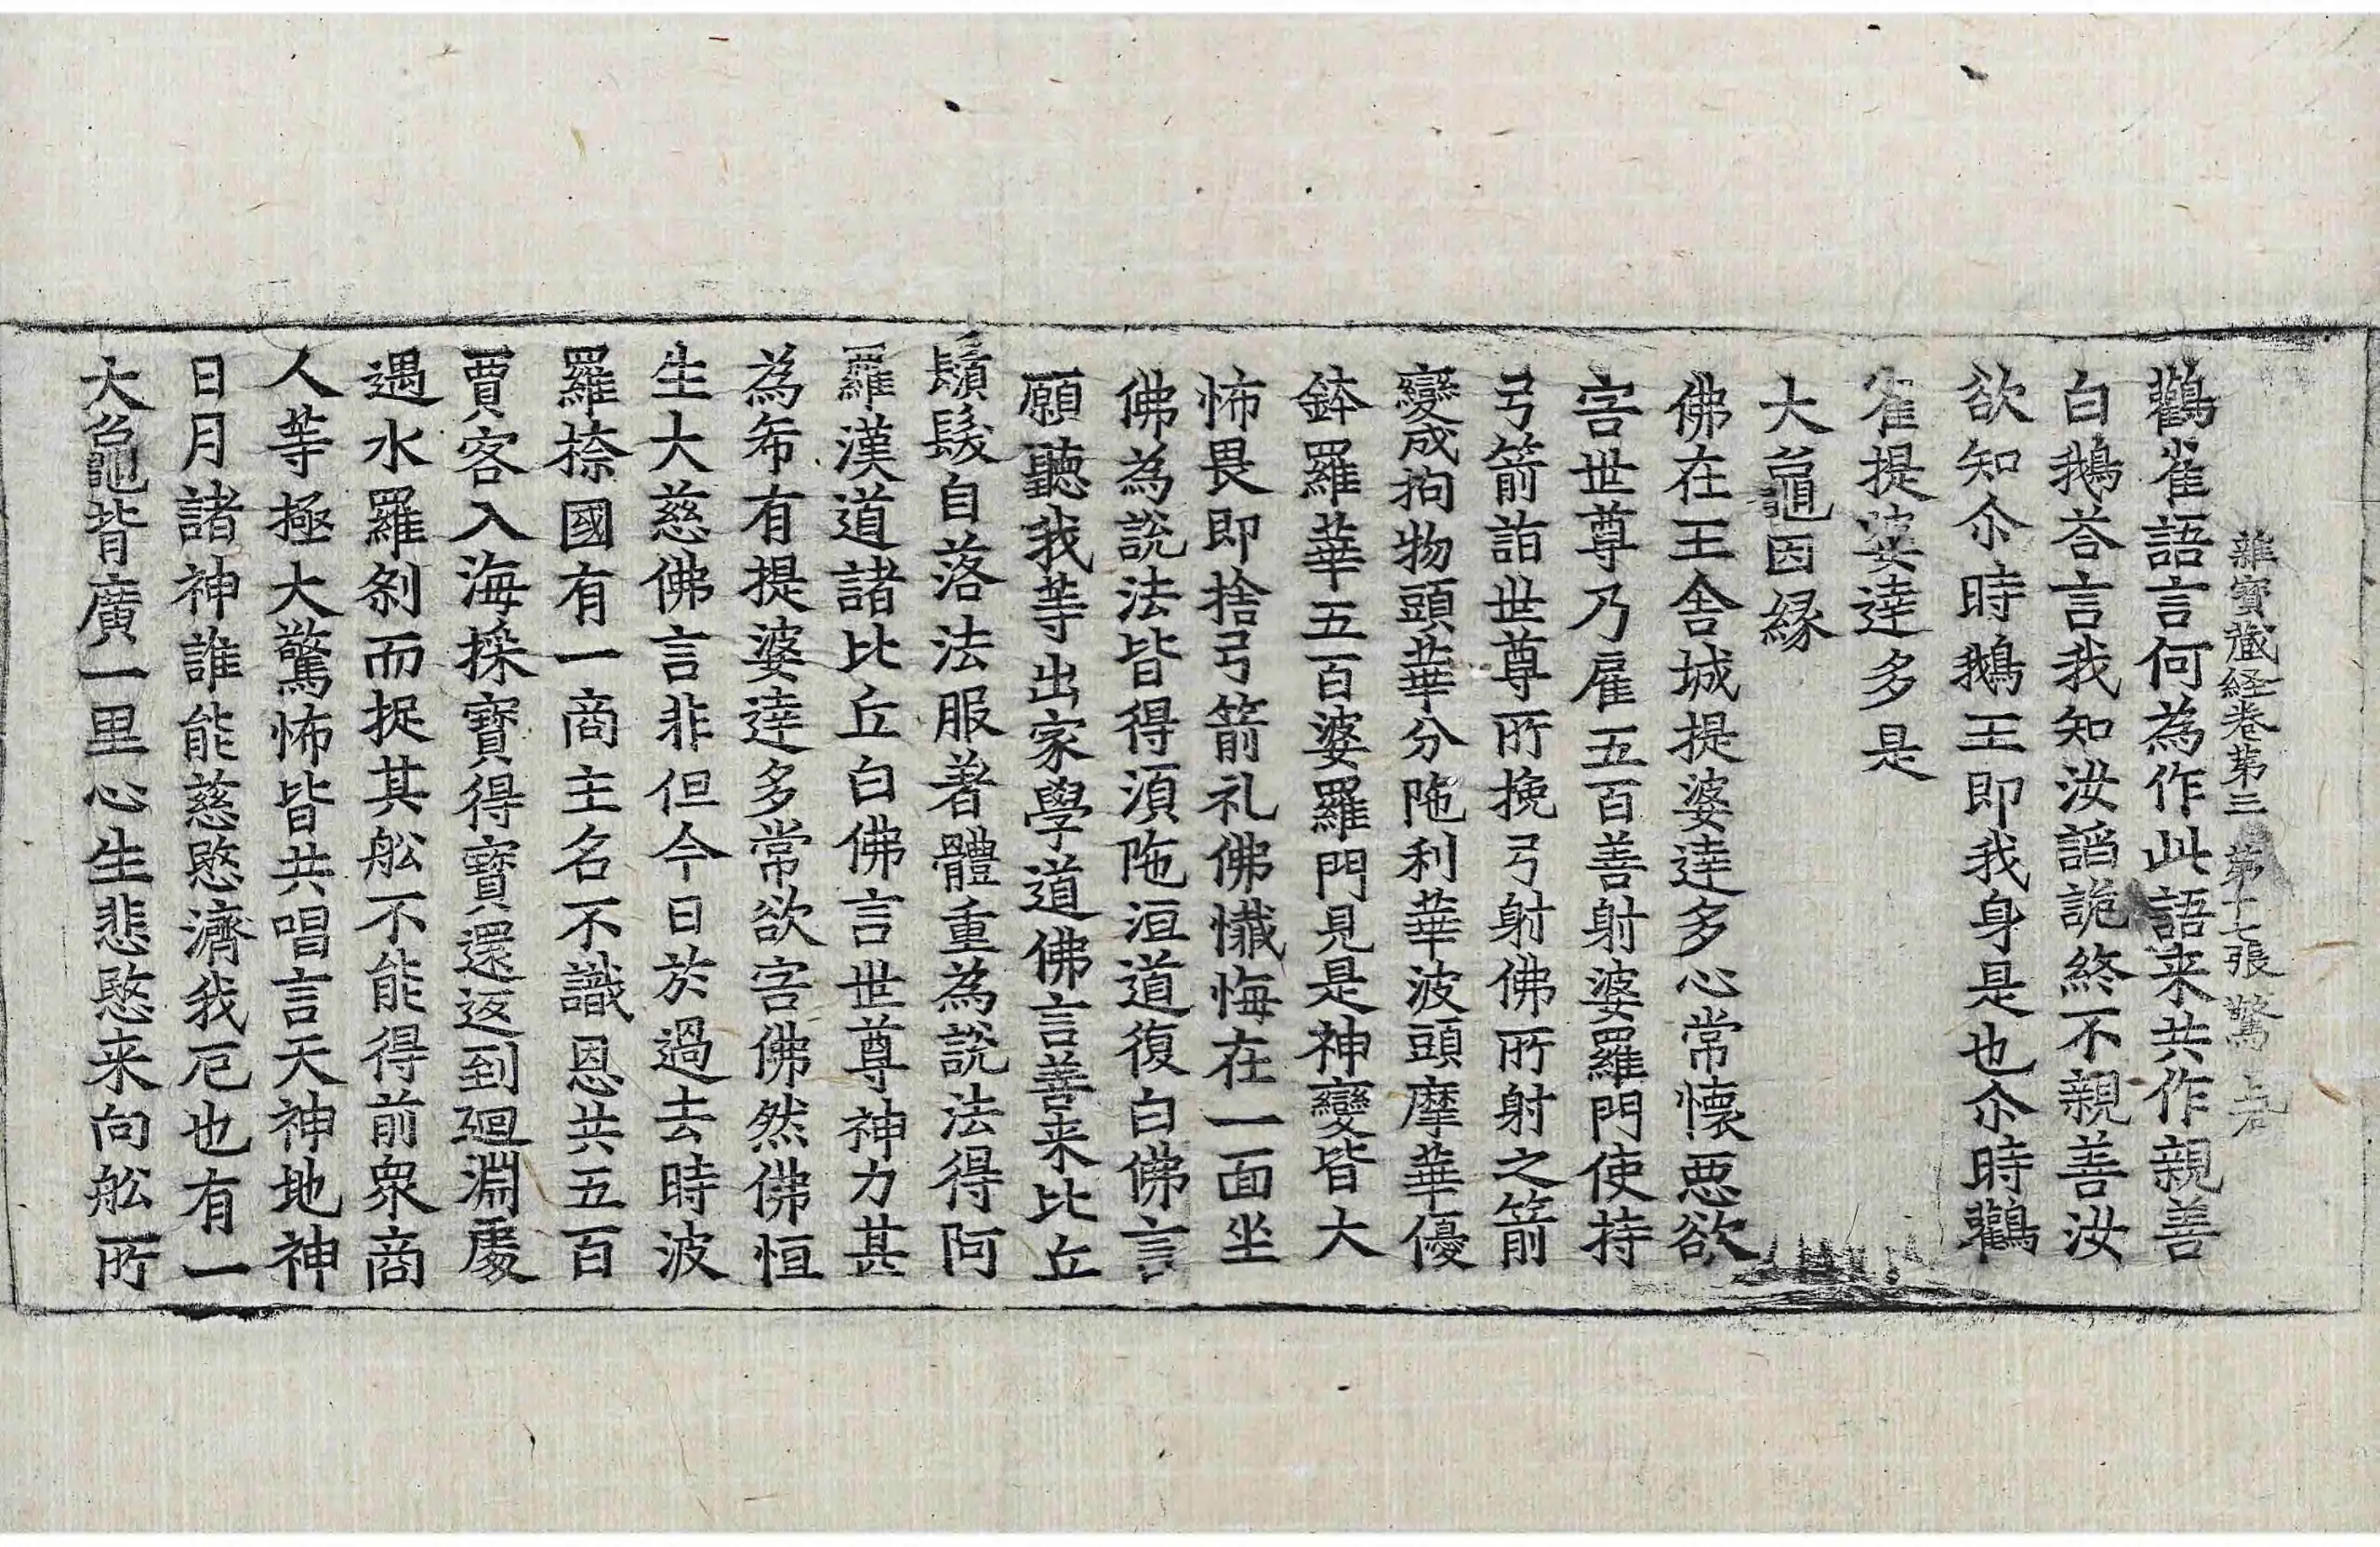 雜寶藏経卷第三 第十七張 驚
鸛雀語言何為作此語来共作親善
白鵝荅言我知汝謟詭終不親善汝
欲知尒時鵝王即我身是也尒時鸛
雀提婆達多是
大龜因縁
佛在王舎城提婆達多心常懷悪欲
害世尊乃雇五百善射婆羅門使持
弓箭詣世尊所挽弓射佛所射之箭
變成拘物頭華分陁利華波頭摩華優
鉢羅華五百婆羅門見是神變皆大
怖畏即捨弓箭礼佛懺悔在一面坐
佛為說法皆得湏陁洹道復白佛言
願聽我等出家學道佛言善来比丘
鬚髮自落法服著體重為說法得阿
羅漢道諸比丘白佛言世尊神力甚
為希有提婆達多常欲害佛然佛恒
生大慈佛言非但今日於過去時波
羅㮈國有一商主名不識恩共五百
賈客入海採寶得寶還返到廻淵䖏
遇水羅刹而捉其舩不能得前衆商
人等極大驚怖皆共唱言天神地神
日月諸神誰能慈愍濟我厄也有一
大龜背廣一里心生悲愍来向舩所